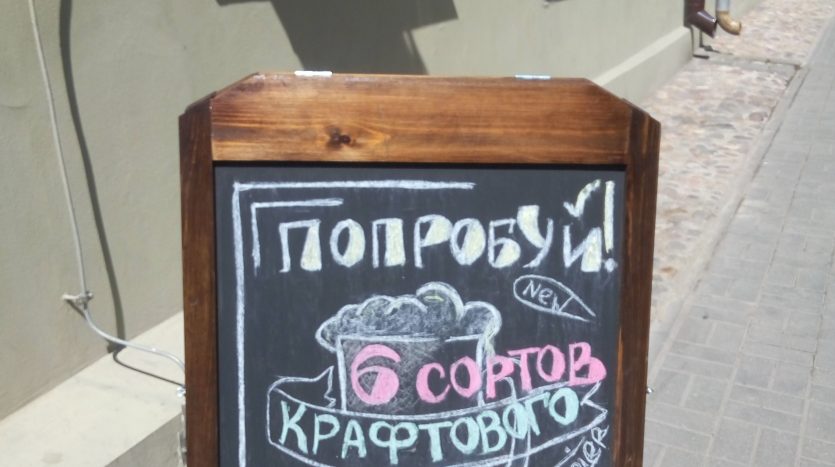 ПОПРОБУЙ!
New
6 СОРТОВ
КРАФТОВОГО